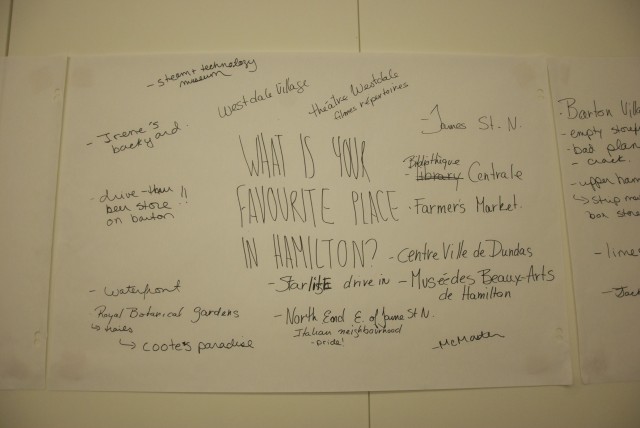 - steam + technology
museum
Westdale Village
théâtre Westdale
filmes répertoires
- James St. N.
- Irene's
backyard
WHAT IS YOUR
FAVOURITE PLACE
IN HAMILTON?
Bibliothique
- Library Centrale
- drive-thru
beer store !!
on barton
- Farmer's Market.
- Centre Ville de Dundas
- Starlite drive in
- Musée des Beaux-Arts
de Hamilton
- waterfront
Royal Botanical Gardens
↳ trails
↳ Coote's paradise
- North End E. of James St N.
Italian neighbourhood
- pride!
- McMaster
Barton Villa
- empty
- bad plan
- crack.
- upper
↳ strip
box store
- lime